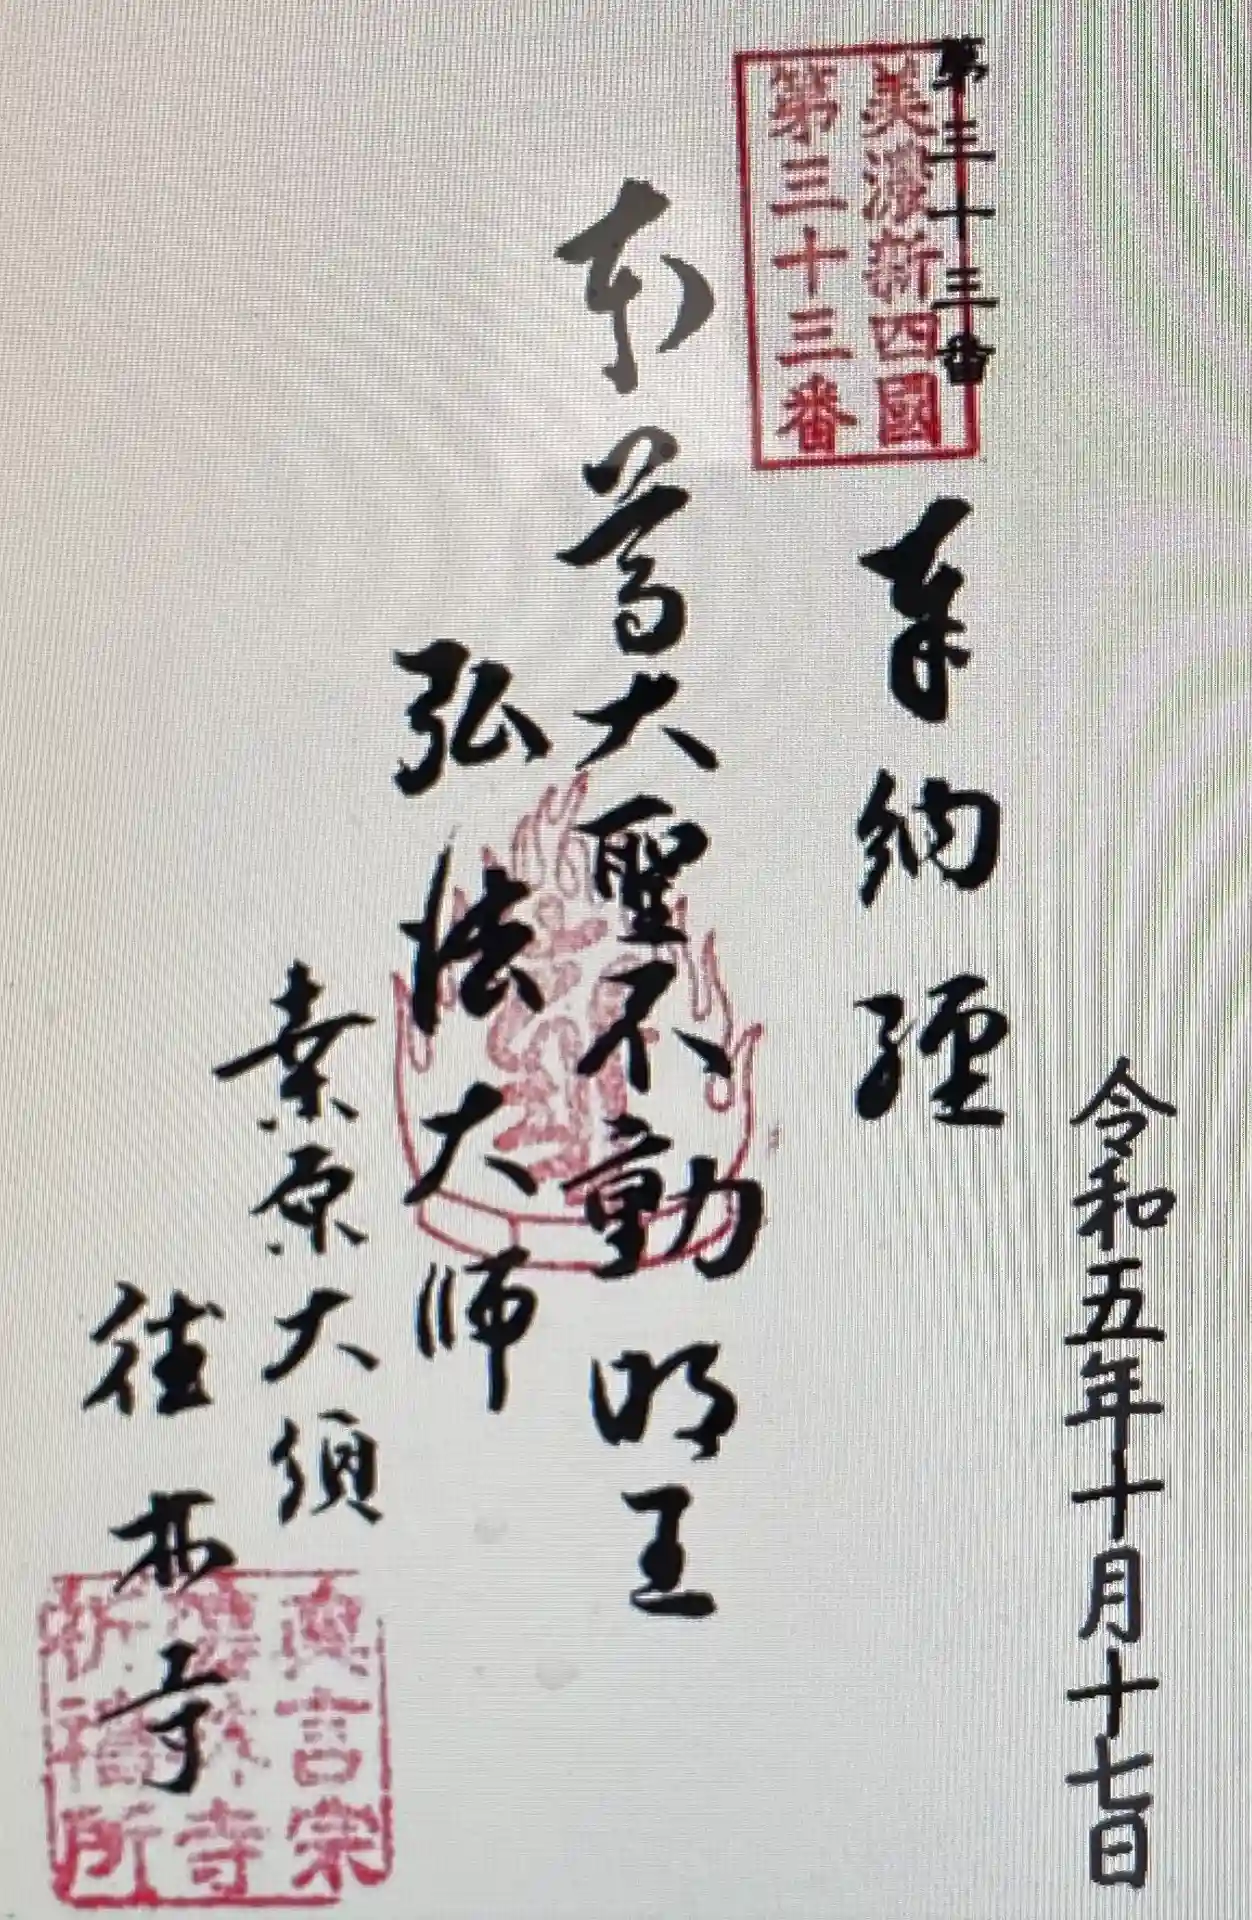 令和五年十月十七日
第三十三番
美濃新四國
第三十三番
奉納経
本尊大聖不動明王
弘法大师
桑原大須
寺
眞言宗
寺
祈禱所